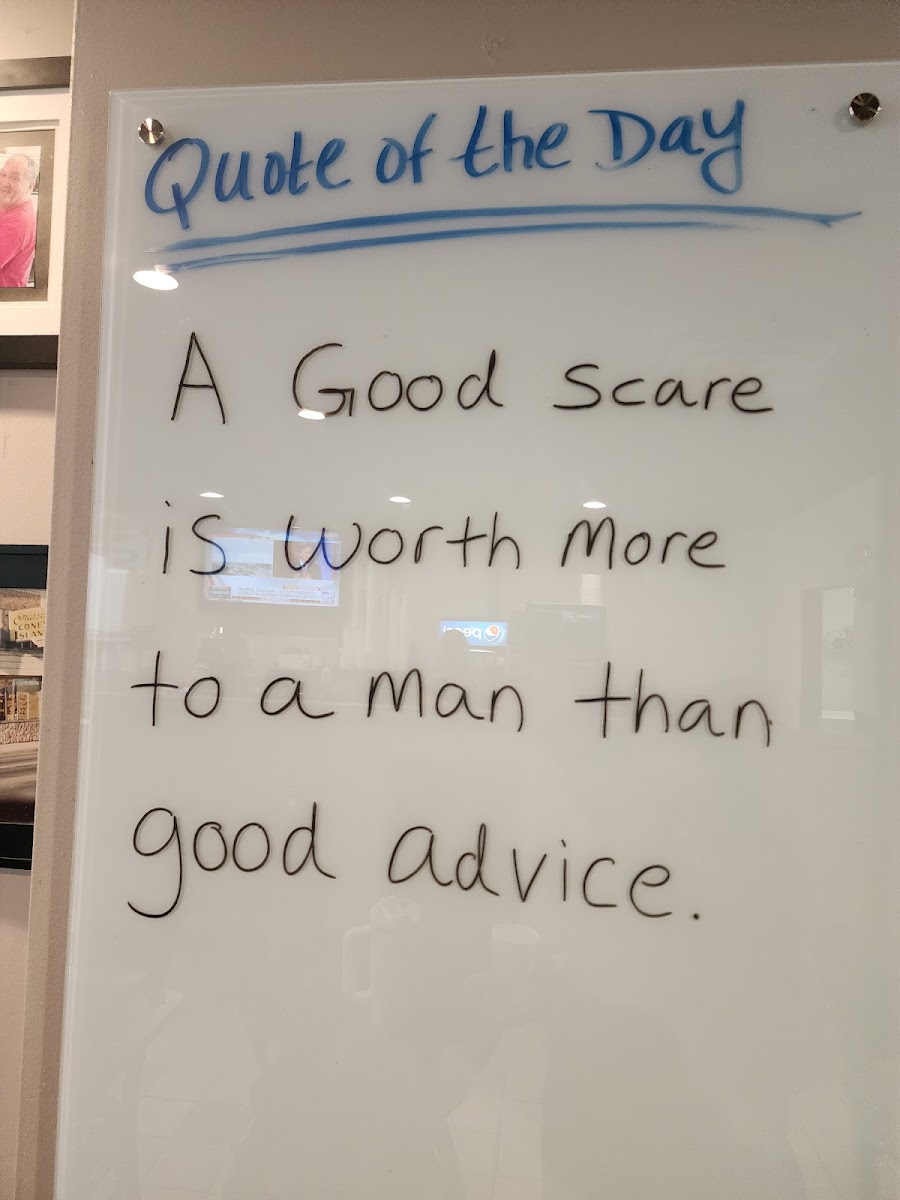 Quote of the Day
A Good scare
is worth more
to a man than
good advice.
CONEY
ISLAN
pepsi